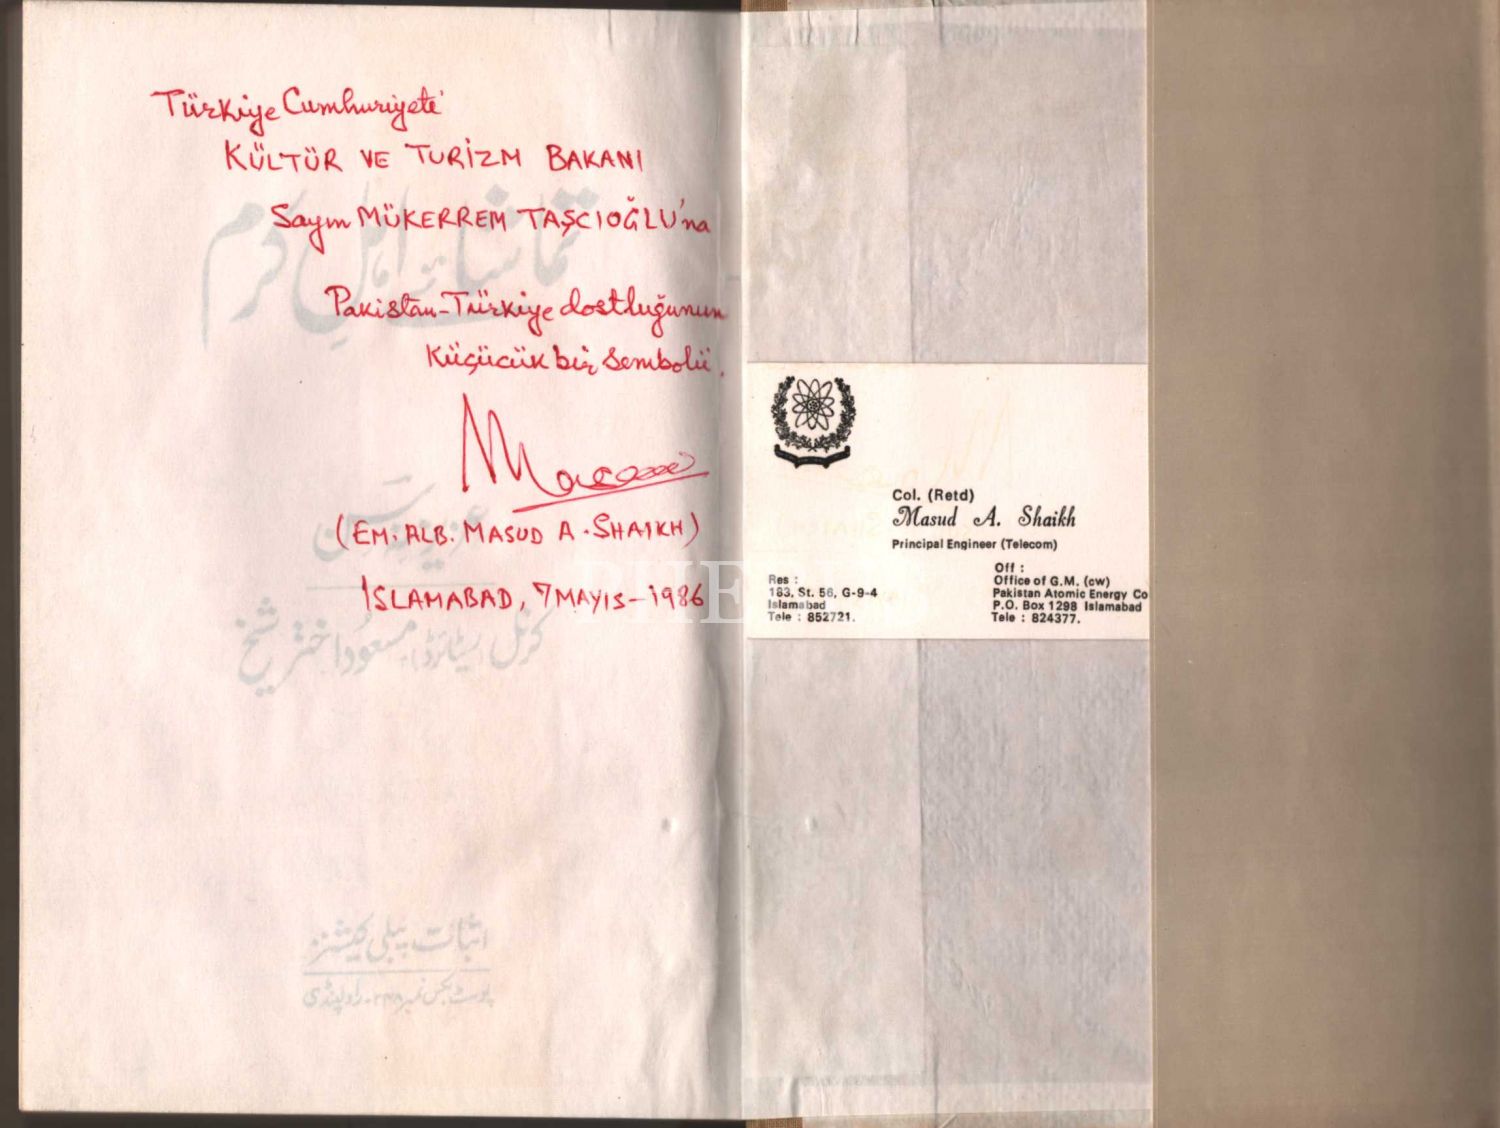 Türkiye Cumhuriyeti
KÜLTÜR VE TURİZM BAKANI
Sayın MÜKERREM TAŞCIOĞLU'na
Pakistan-Türkiye dostluğunun
Küçücük bir sembolü.
(EM. ALB. MASUD A. SHAIKH)
ISLAMABAD, 7 MAYIS-1986
تماشائے اہلِ کرم
عزیز نہ سن
کرنل (ریٹائرڈ) مسعود اختر شیخ
اثبات پبلی کیشنز
پوسٹ بکس نمبر ۲۳۸ - راولپنڈی
Col. (Retd)
Masud A. Shaikh
Principal Engineer (Telecom)
Res :
183, St. 56, G-9-4
Islamabad
Tele : 852721.
Off :
Office of G.M. (cw)
Pakistan Atomic Energy Co
P.O. Box 1298 Islamabad
Tele : 824377.